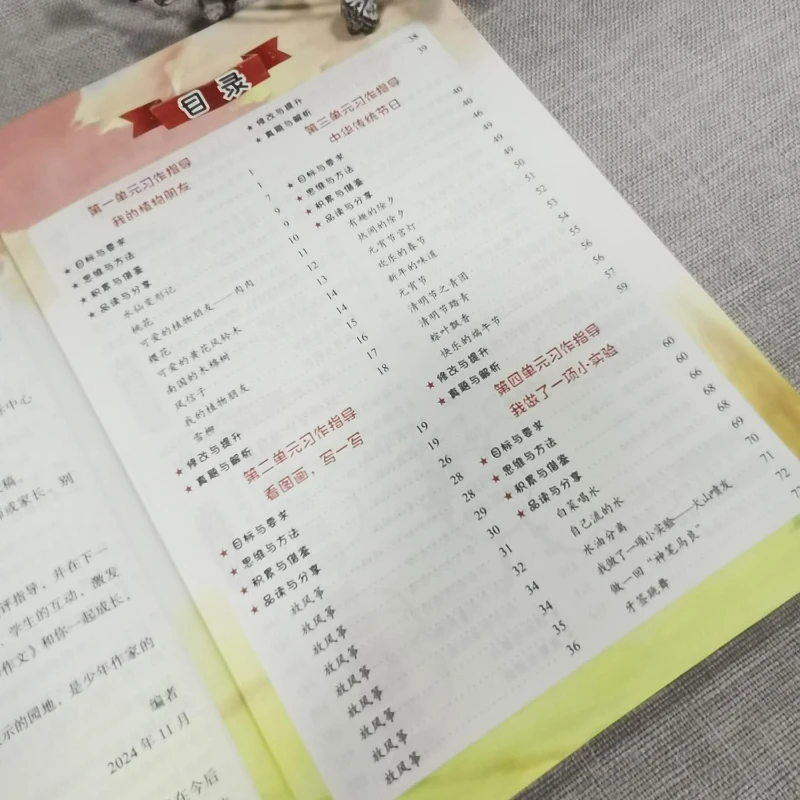 目录
第一单元习作指导
我的植物朋友 1
★目标与要求 1
★思维与方法 7
★积累与借鉴 9
★品读与分享 9
水仙变形记 10
桃花 11
可爱的植物朋友——肉肉 12
樱花 13
可爱的黄花风铃木 14
南国的木棉树 14
风信子 15
我的植物朋友 16
雪柳 17
★修改与提升 18
★真题与解析
第二单元习作指导
看图画，写一写 19
★目标与要求 19
★思维与方法 26
★积累与借鉴 28
★品读与分享 28
放风筝 29
放风筝 30
放风筝 31
放风筝 32
放风筝 34
放风筝 34
放风筝 35
放风筝 36
★修改与提升 38
★真题与解析 39
第三单元习作指导
中华传统节日 40
★目标与要求 40
★思维与方法 46
★积累与借鉴 49
★品读与分享 49
有趣的除夕 49
热闹的除夕 50
元宵节宫灯 51
欢乐的春节 52
新年的味道 53
元宵节 54
清明节之青团 55
清明节踏青 56
粽叶飘香 56
快乐的端午节 57
★修改与提升 59
★真题与解析
第四单元习作指导
我做了一项小实验 60
★目标与要求 60
★思维与方法 66
★积累与借鉴 68
★品读与分享 68
白菜喝水 69
自己流的水 70
水油分离 71
我做了一项小实验——火山喷发 72
做一回“神笔马良”
牙签跳舞
中心
稿。
或家长，别
评指导，并在下一
、学生的互动，激发
作文》和你一起成长。
示的园地，是少年作家的
编者
2024年11月
在今后